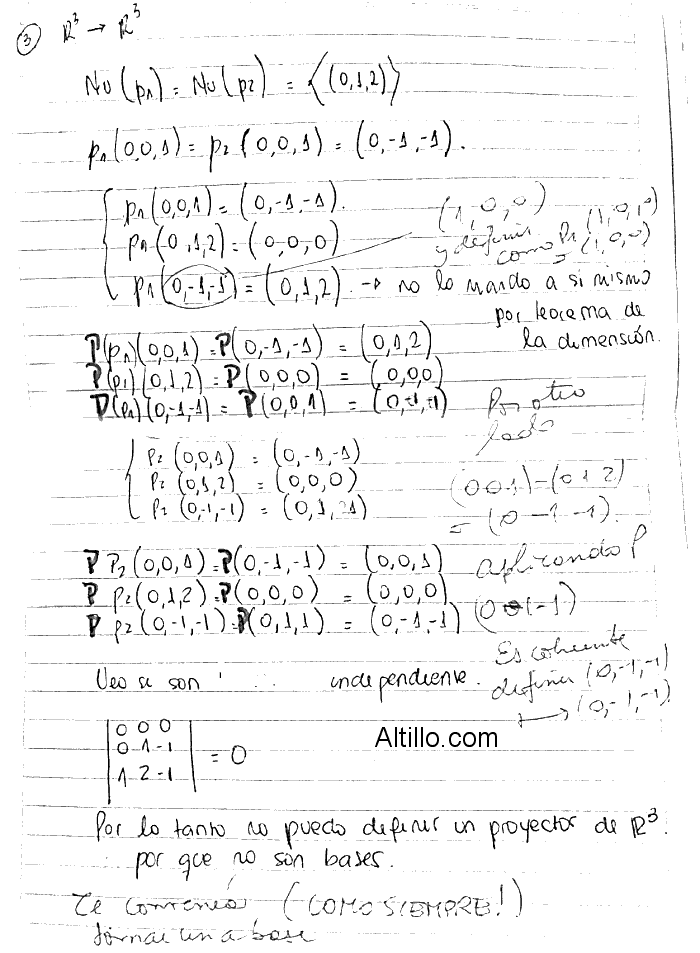 ③ R³ → R³
Nu(p₁) = Nu(p₂) = ⟨(0,1,2)⟩
p₁(0,0,1) = p₂(0,0,1) = (0,-1,-1).
p₁(0,0,1) = (0,-1,-1).
p₁(0,1,2) = (0,0,0)
p₁(0,-1,-1) = (0,1,2) → no lo mando a si mismo
por teorema de
la dimensión.
(1,0,0)
y definir
como P₁(1,0,0)
= (1,0,0)
P(p₁)(0,0,1) = P(0,-1,-1) = (0,1,2)
P(p₁)(0,1,2) = P(0,0,0) = (0,0,0)
P(p₁)(0,-1,-1) = P(0,0,1) = (0,-1,-1)
Por otro
lado
p₂(0,0,1) = (0,-1,-1)
p₂(0,1,2) = (0,0,0)
p₂(0,-1,-1) = (0,1,
(0 0 1)-(0 1 2)
= (0 -1 -1).
aplicando P
P p₂(0,0,1) = P(0,-1,-1) = (0,0,1)
P p₂(0,1,2) = P(0,0,0) = (0,0,0)
P p₂(0,-1,-1) = P(0,1,1) = (0,-1,-1)
Es coherente
definir (0,-1,-1)
→ (0,-1,-1)
Veo si son independiente.
0 0 0
0 1 -1 = 0
1 2 -1
Altillo.com
Por lo tanto no puedo definir un proyector de R³.
por que no son bases.
Te convenía, (COMO SIEMPRE!)
tomar una base